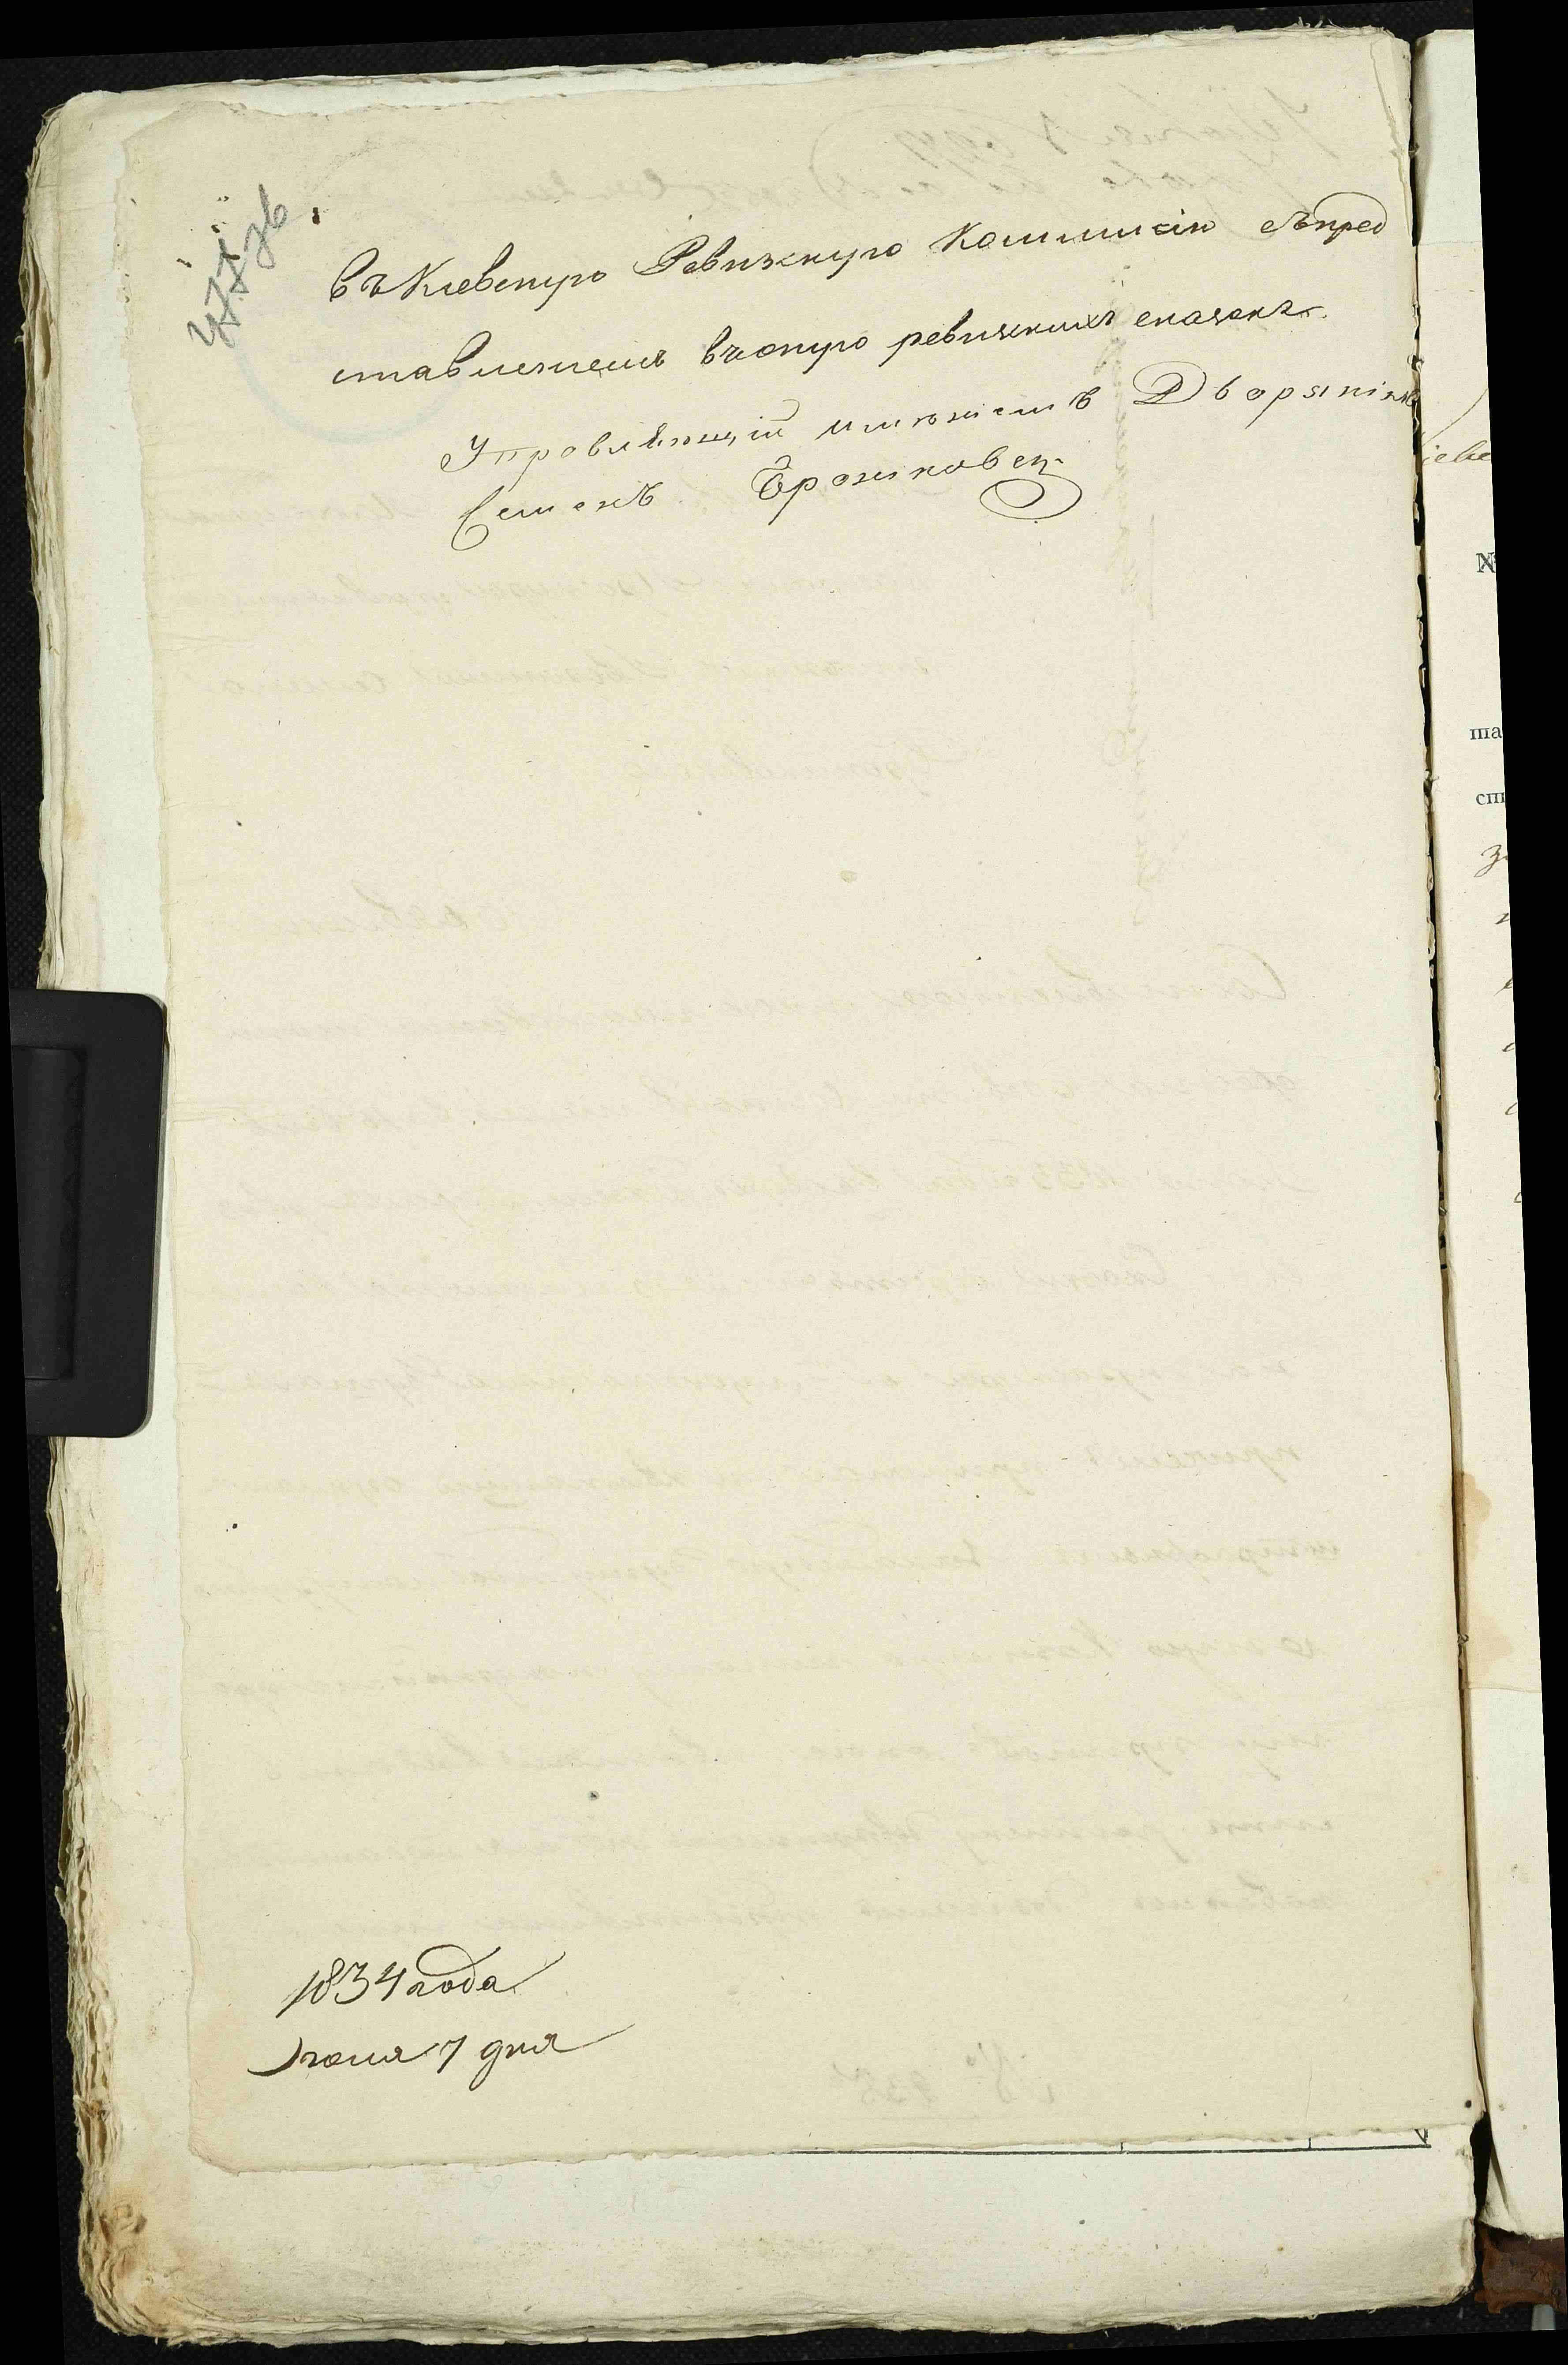 въ Кіевскую Ревизкую Коммисію съпред
ставленіемъ въоную ревизкихъ сказокъ.
Управляющій имѣніемъ Дворянинъ
Семенъ Брониковец
1834 года
Іюня 7 дня